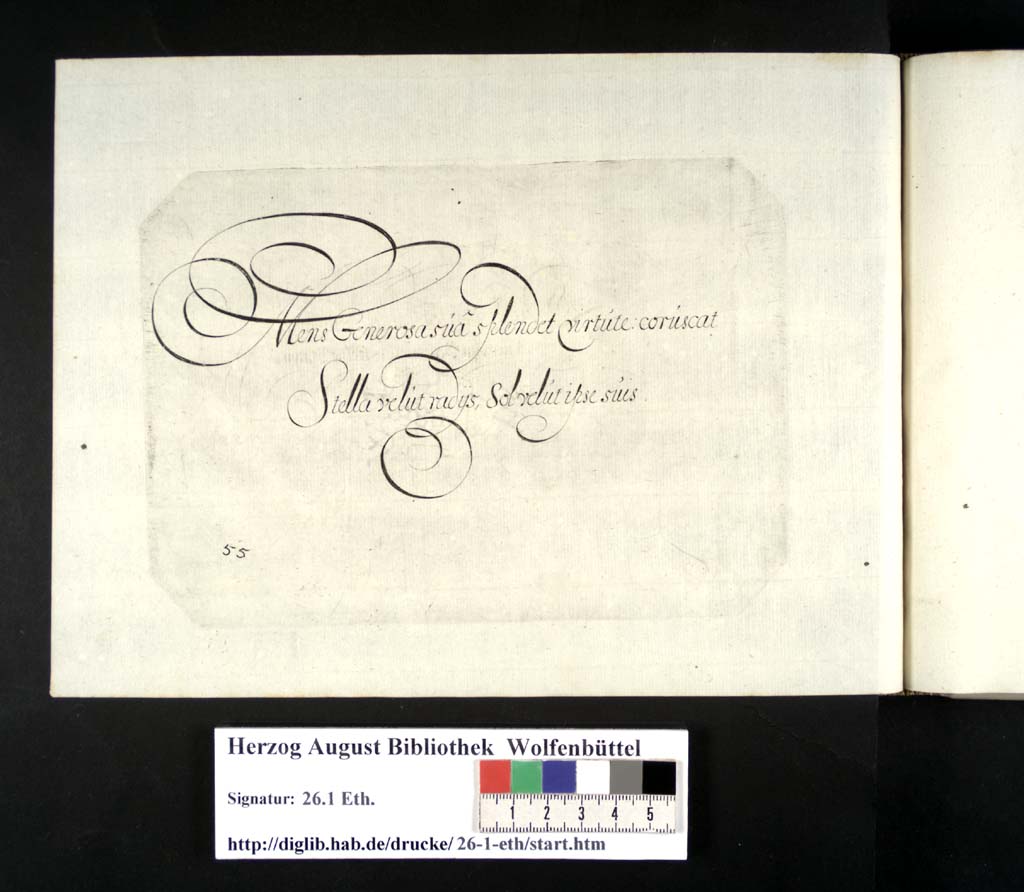 Mens Generosa súâ splendet virtúte: corúscat
Stella velút radijs, Sol velút ipse súis.
55
Herzog August Bibliothek Wolfenbüttel
Signatur: 26.1 Eth.
1 2 3 4 5
http://diglib.hab.de/drucke/ 26-1-eth/start.htm